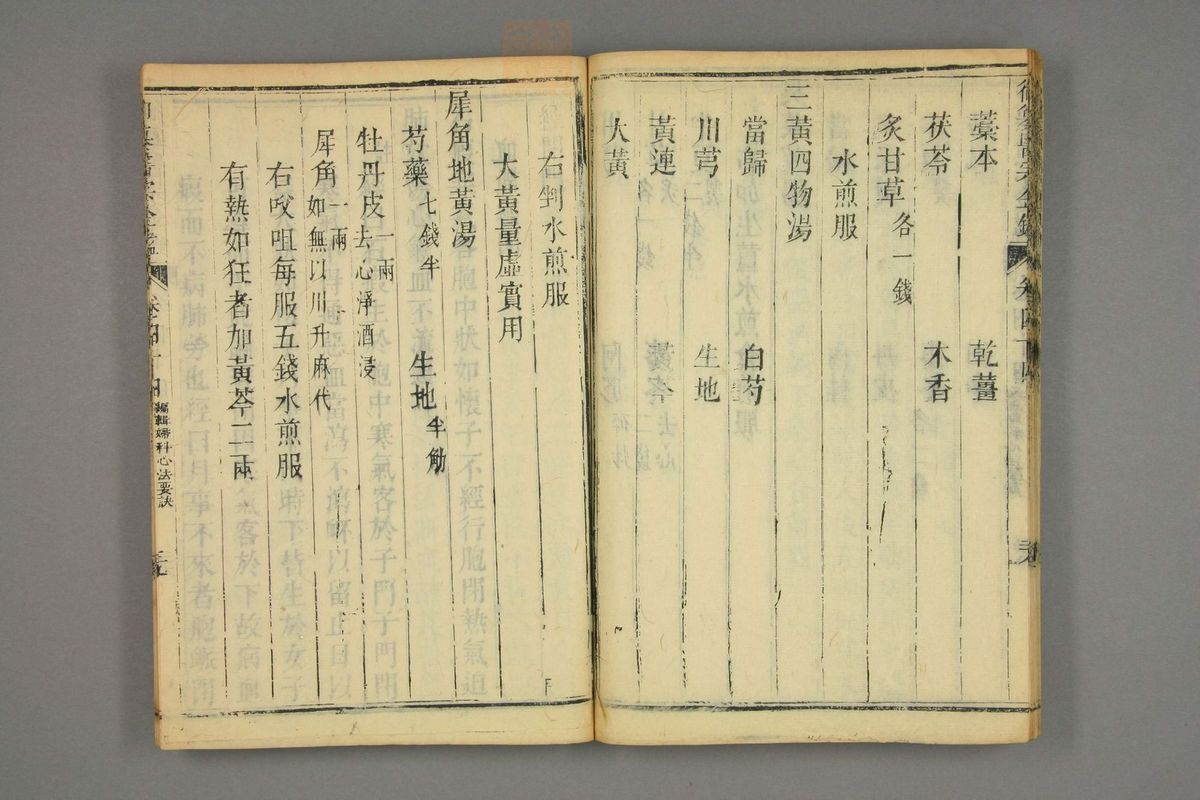 藁本 乾薑
茯苓 木香
炙甘草各一錢
水煎服
三黃四物湯
當歸 白芍
川芎 生地
黃連
大黃
右剉水煎服
大黃量虛實用
犀角地黃湯
芍藥七錢半 生地半觔
牡丹皮去心淨酒浸一兩
犀角如無以川升麻代一兩
右㕮咀每服五錢水煎服
有熱如狂者加黃芩二兩
編輯婦科心法要訣